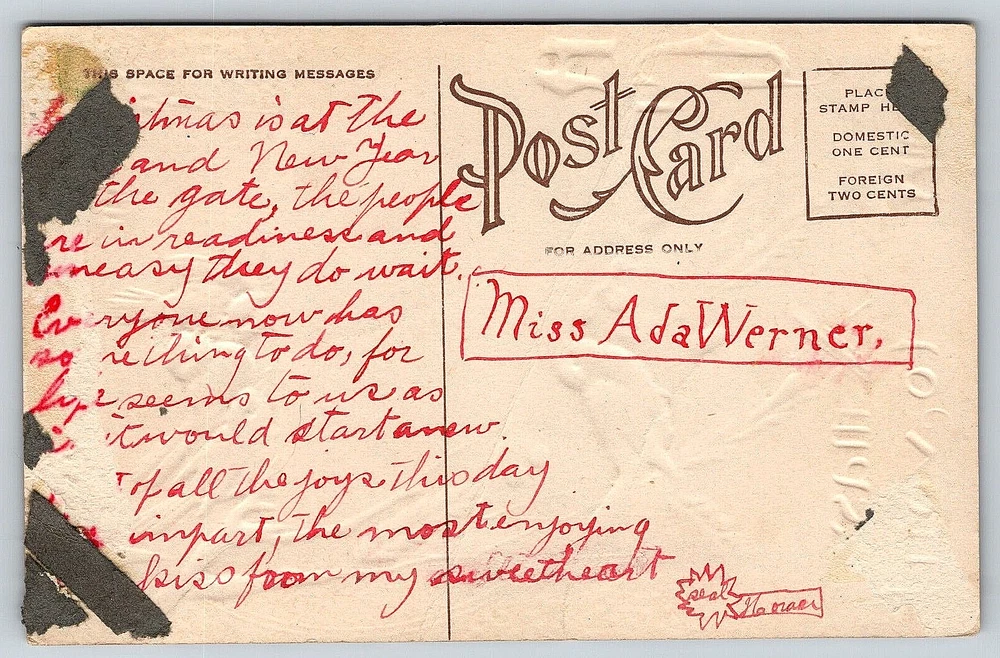 THIS SPACE FOR WRITING MESSAGES
Post Card
PLAC
STAMP HE
DOMESTIC
ONE CENT
FOREIGN
TWO CENTS
FOR ADDRESS ONLY
itmas is at the
and New Year
the gate, the people
re in readiness and
neasy they do wait.
Everyone now has
so ething to do, for
life seems to us as
it would start anew
of all the joys this day
impart, the most enjoying
kiss from my sweetheart
Miss Ada Werner.
seal